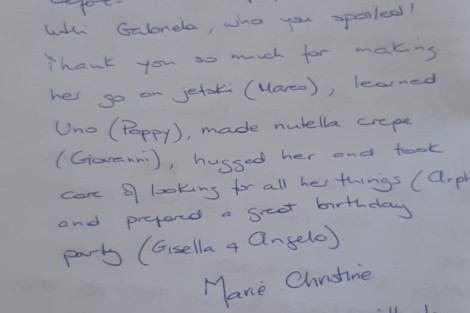 with Gabriela, who you spoiled!
Thank you so much for making
her go on jetski (Marco), learned
Uno (Poppy), made nutella crepe
(Giovanni), hugged her and took
care of looking for all her things (Arph
and prepared a great birthday
party (Gisella & Angelo)
Marie Christine